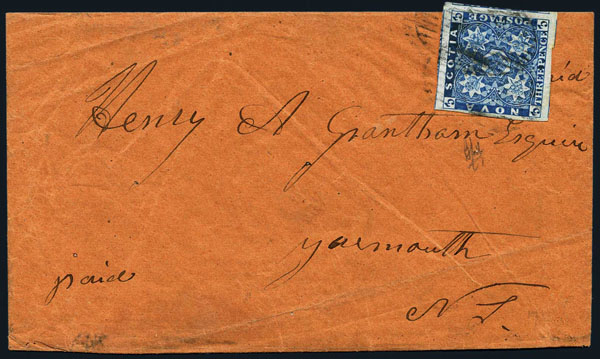 NOVA SCOTIA POSTAGE THREE PENCE
3 3 3 3
paid
Henry A Grantham Esquire
Yarmouth
paid
N.S.